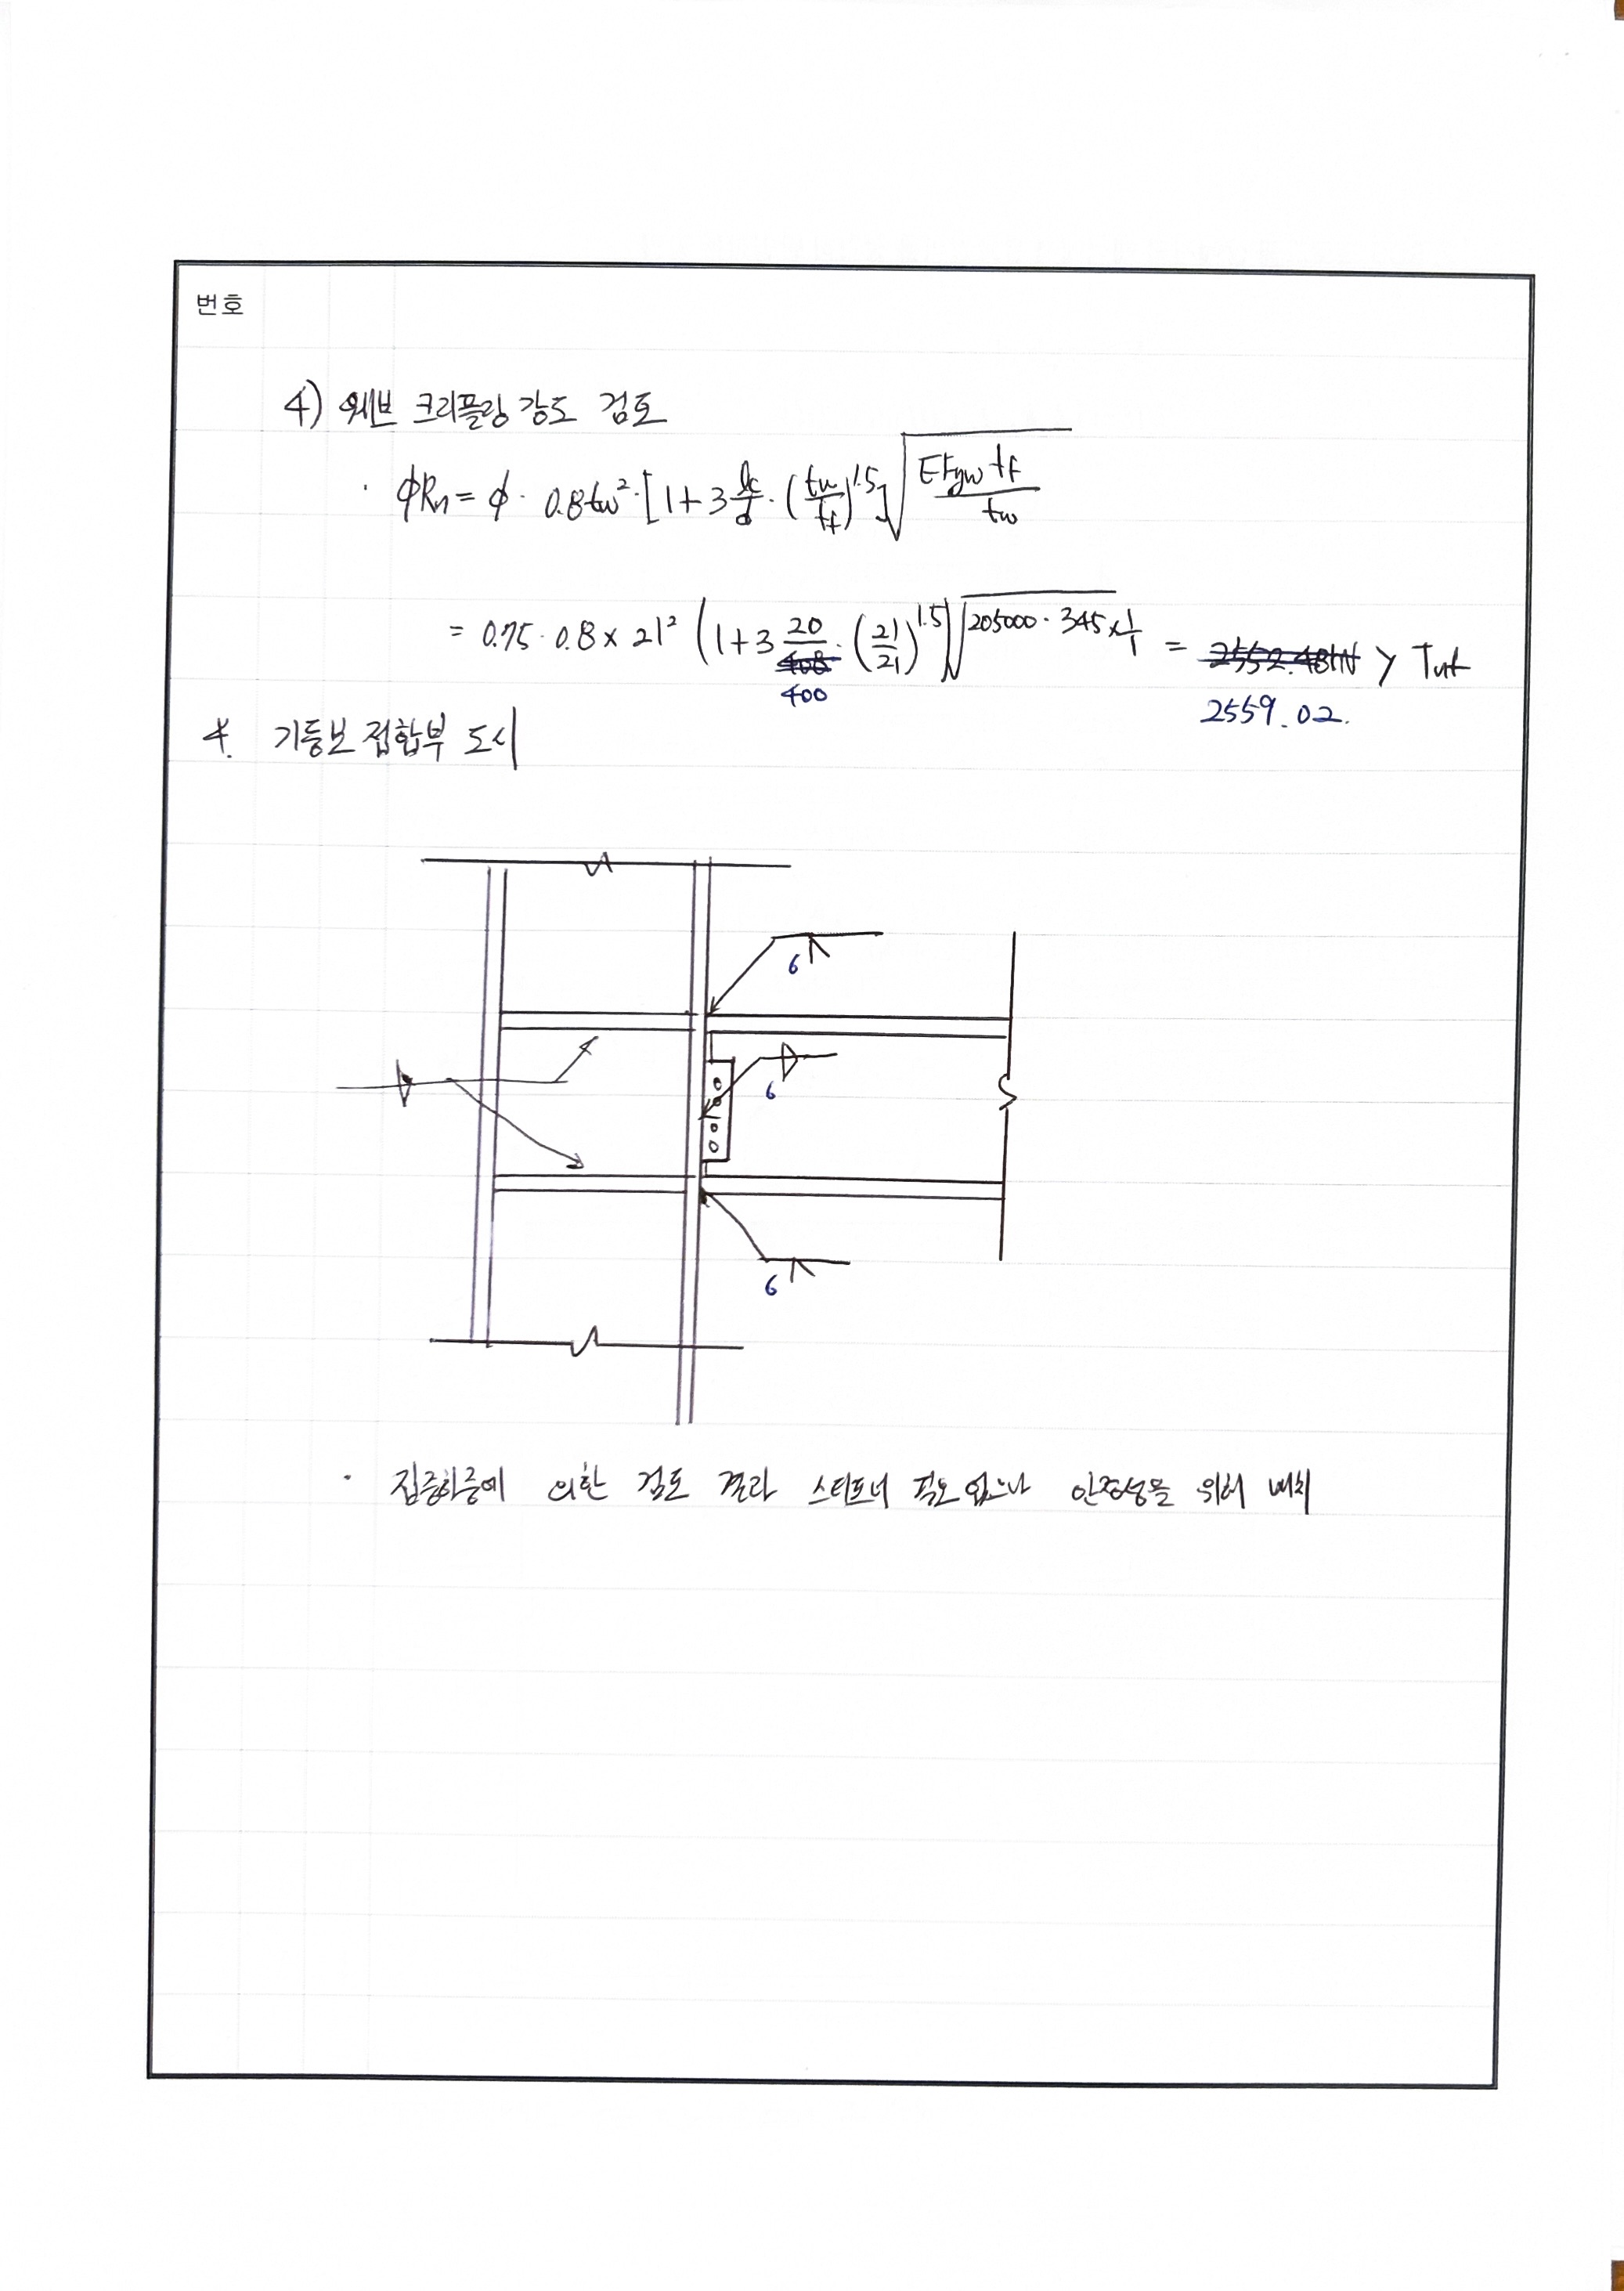 번호
4) 웨브 크리플링 강도 검토
· ϕRn = ϕ · 0.8tw² · [1 + 3 lc/d · (tw/tf)^1.5] √(E Fyw tf / tw)
= 0.75 · 0.8 × 21² (1 + 3 20/400 · (21/21)^1.5) √(205000 · 345 × 1/1) = 2559.02. > Tuf
4. 기둥보 접합부 도시
6
6
6
· 집중하중에 의한 검토 결과 스티프너 필요 없으나 안정성을 위해 배치